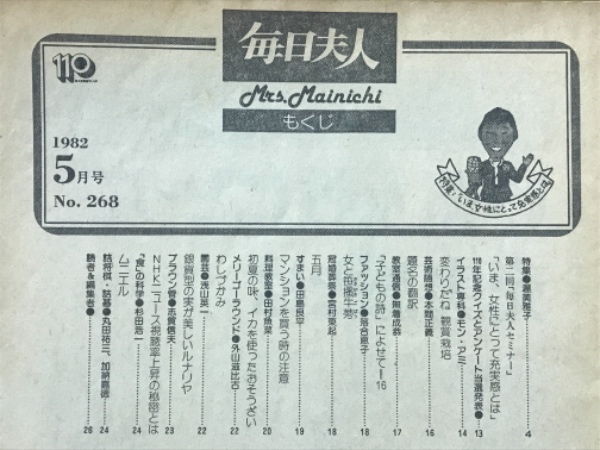 110
毎日夫人
Mrs. Mainichi
もくじ
1982
5月号
No. 268
対室:いま、女性にとって充実感とは
特集●渥美雅子
第二回「毎日夫人セミナー」
「いま、女性にとって充実感とは」 4
110年記念クイズとアンケート当選発表● 13
イラスト専科●モン・アミ 14
変わりだね 観賞栽培
芸術随想●本間正義 16
題名の翻訳
教室通信●無着成恭 17
「子どもの詩」によせて!16
ファッション●落合恵子 18
女と
冠婚葬祭●宮村東起 18
五月
すまい●田島良平 19
マンションを買う時の注意
料理教室●田村魚菜 20
初夏の味、イカを使ったおそうざい
メリーゴーラウンド●外山滋比古 22
わしづかみ
園芸●浅山英一 22
銀貨型の実が美しいルナリヤ
ブラウン管●志賀信夫 23
NHKニュース視聴率上昇の秘密とは
「食」の科学●杉田浩一 24
ムニエル
詰将棋・詰碁●丸田祐三、加納嘉徳 24
読者&編集者● 26